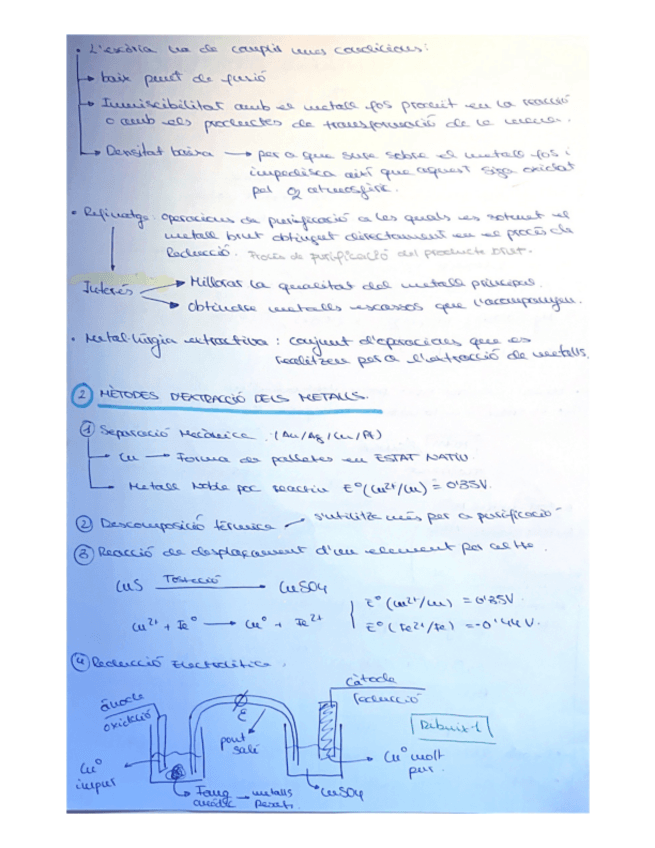 • L'escòria ha de complir unes condicions:
→ baix punt de fusió
→ Immiscibilitat amb el metall fos produït en la reacció
o amb els productes de transformació de la mena.
→ Densitat baixa → per a que sure sobre el metall fos i
impedisca així que aquest siga oxidat
pel O2 atmosfèric.
• Refinatge: operacions de purificació a les quals es sotmet el
metall brut obtingut directament en el procés de
Reducció. Procés de purificació del producte brut.
Interés → Millorar la qualitat del metall principal.
→ obtindre metalls escassos que l'acompanyen.
• Metal·lúrgia extractiva: conjunt d'operacions que es
realitzen per a l'extracció de metalls.
② MÈTODES D'EXTRACCIÓ DELS METALLS.
① Separació Mecànica. (Au/Ag/Cu/Pt)
→ Cu → Forma de palletes en ESTAT NATIU.
→ Metall Noble poc reactiu E°(Cu2+/Cu) = 0'35V.
② Descomposició tèrmica → s'utilitza més per a purificació
③ Reacció de desplaçament d'un element per altre.
CuS Torrefacció → CuSO4
Cu2+ + Fe° → Cu° + Fe2+
E°(Cu2+/Cu) = 0'35V.
E°(Fe2+/Fe) = -0'44V.
④ Reducció Electrolítica.
ànode
oxidació
E
pont
salí
càtode
reducció
Dibuix-1
Cu°
impur
Fang
anòdic → metalls
pesats
CuSO4
Cu° molt
pur.